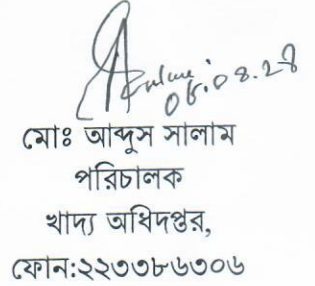 ০৮.০৪.২৪
মোঃ আব্দুস সালাম
পরিচালক
খাদ্য অধিদপ্তর,
ফোন:২২৩৩৮৬৩০৬